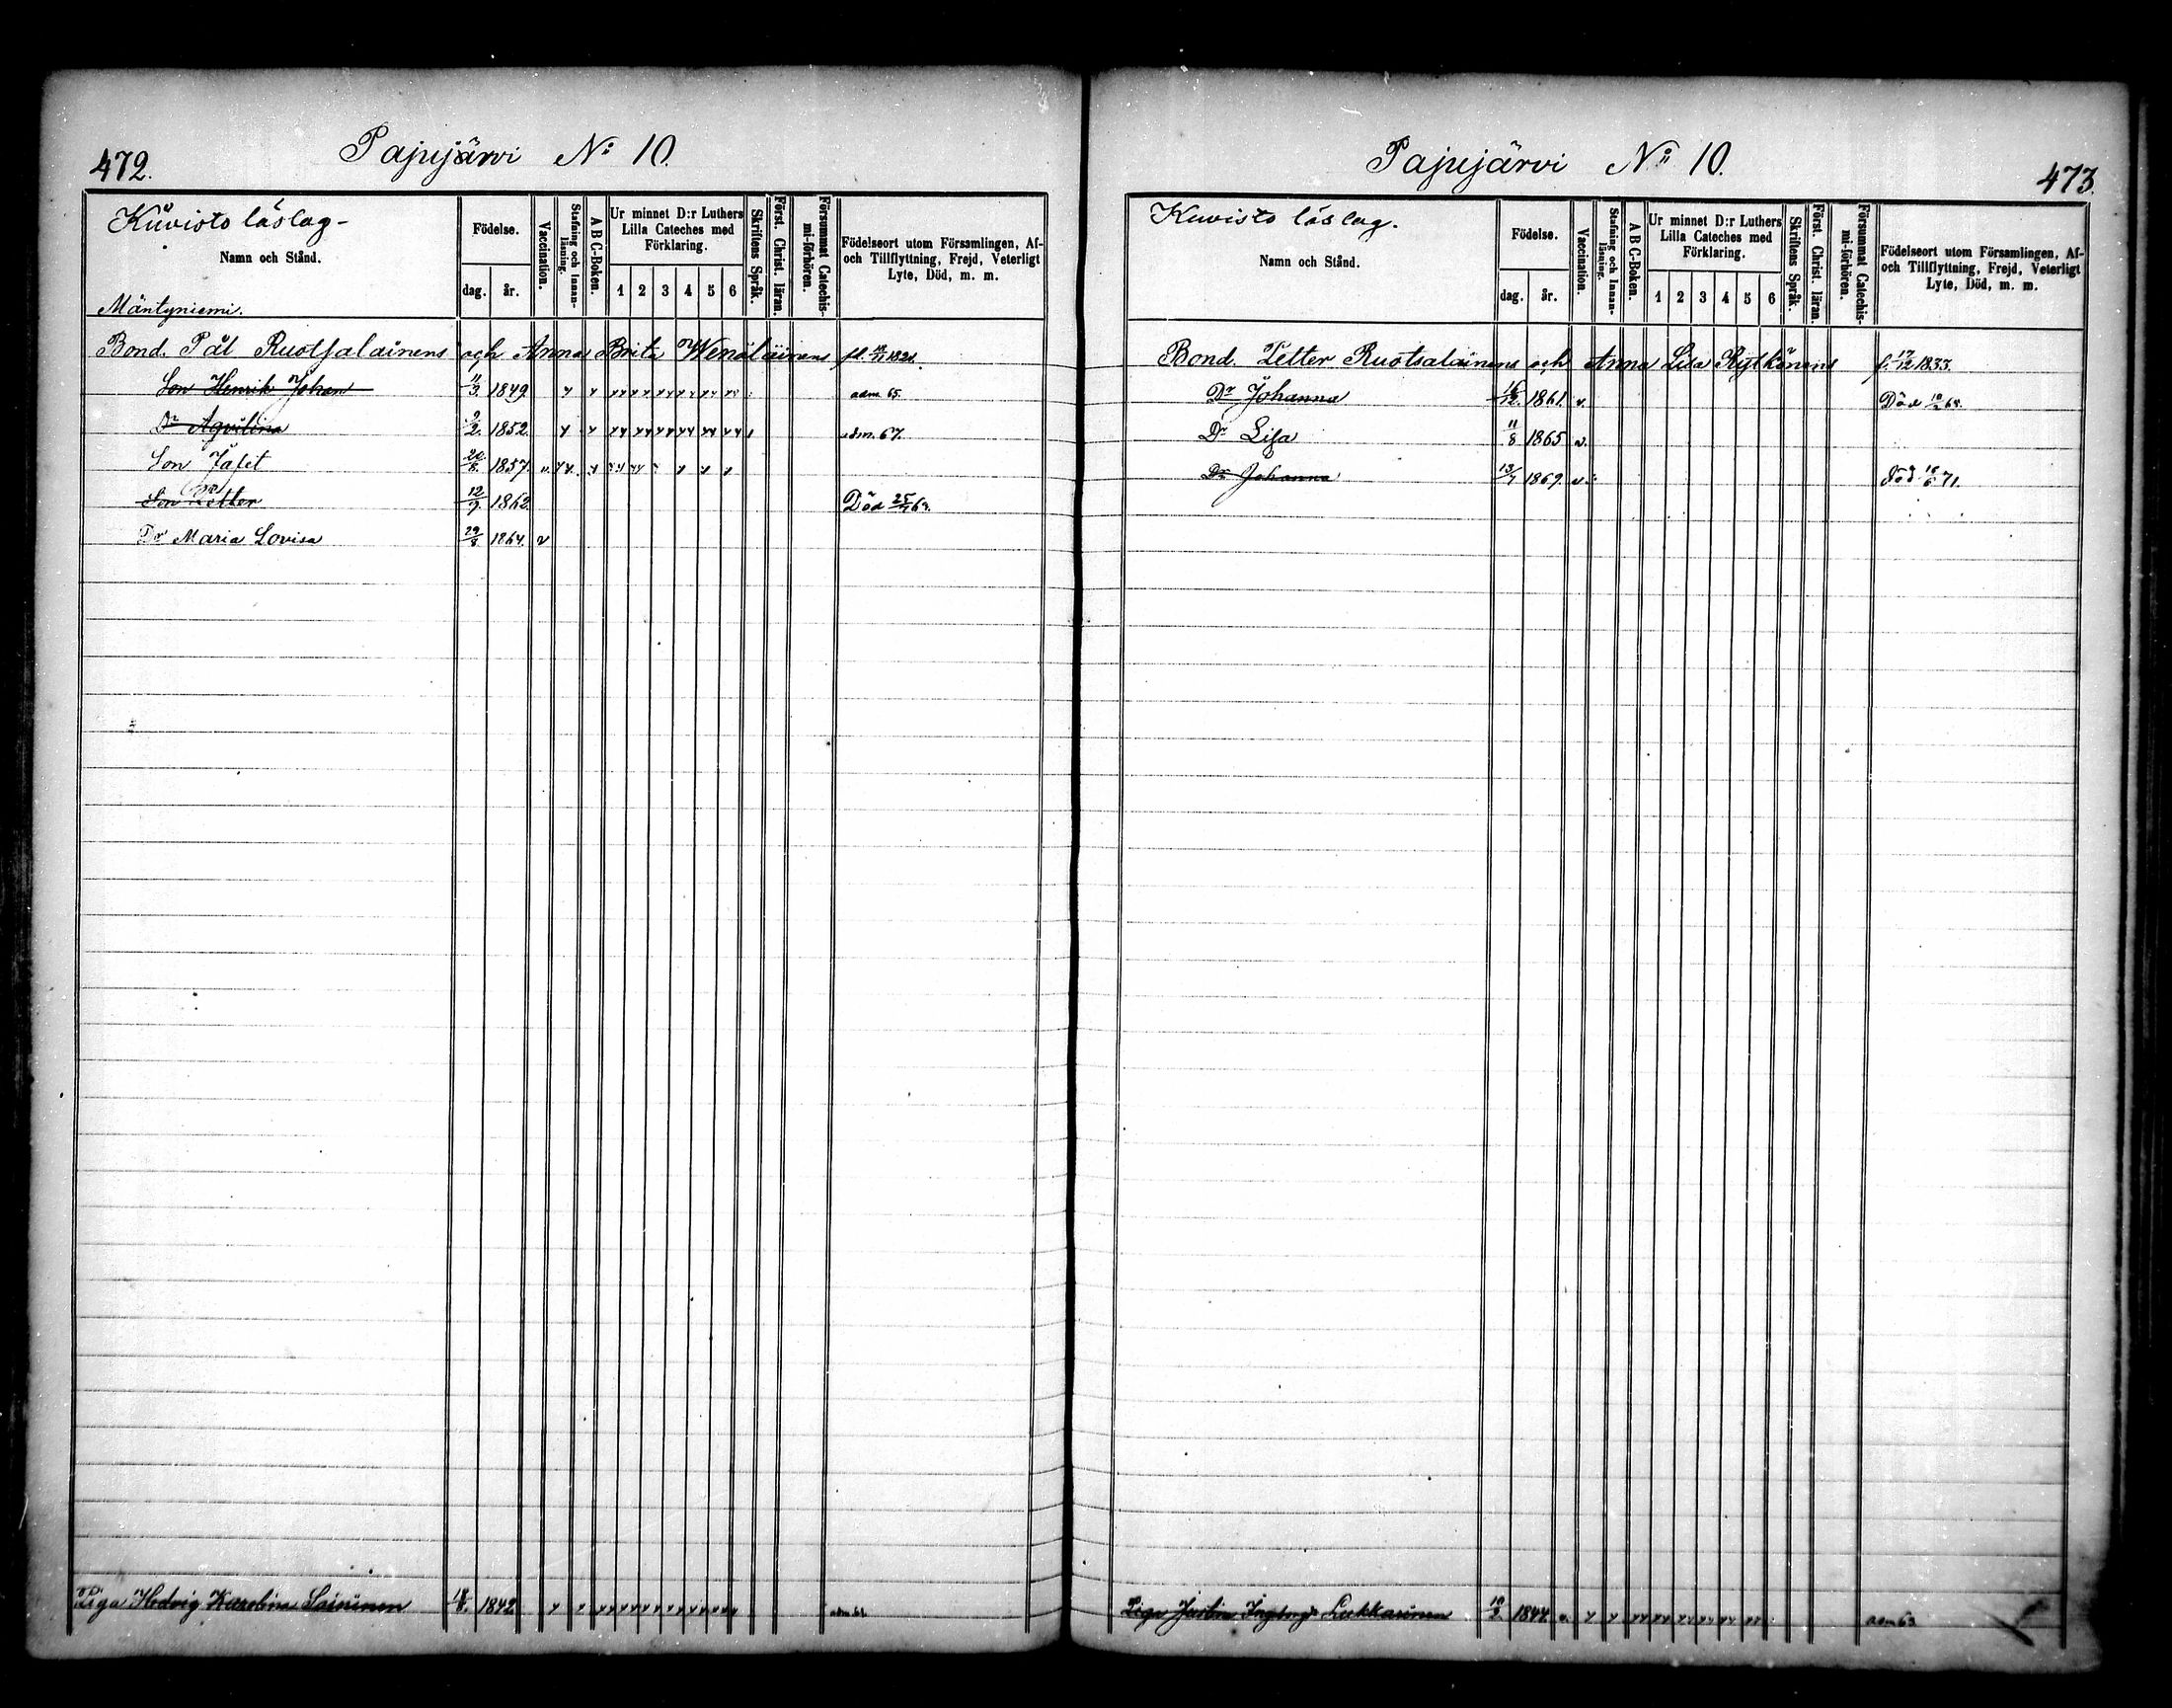 472.
Pajujärvi No 10.
Kuvisto läslag-
Namn och Stånd.
Mäntyniemi.
Födelse.
dag. år.
Vaccination.
Stafning och Innan-läsning.
A B C-Boken.
Ur minnet D:r Luthers
Lilla Cateches med
Förklaring.
1 2 3 4 5 6
Skriftens Språk.
Först. Christ. läran.
Försummat Catechis-mi-förhören.
Födelseort utom Församlingen, Af-
och Tillflyttning, Frejd, Veterligt
Lyte, Död, m. m.
Bond. Pål Ruotsalainens och Anna Brita Wenäläinens 1821.
Son Henrik Johan 11/3. 1849. adm. 65.
Dr Agvilina 2/2. 1852. adm. 67.
Son Jafet 20/8. 1857. v.
Son Petter 12/9. 1862. Död
Dr Maria Lovisa 29/8. 1864. v
Piga Hedvig Karolina 1842.
473.
Pajujärvi No 10.
Kuvisto läslag.
Namn och Stånd.
Födelse.
dag. år.
Vaccination.
Stafning och Innan-läsning.
A B C-Boken.
Ur minnet D:r Luthers
Lilla Cateches med
Förklaring.
1 2 3 4 5 6
Skriftens Språk.
Först. Christ. läran.
Försummat Catechis-mi-förhören.
Födelseort utom Församlingen, Af-
och Tillflyttning, Frejd, Veterligt
Lyte, Död, m. m.
Bond. Petter Ruotsalainens och Anna Lisa Rytkönens f. 17/12 1833.
Dr Johanna 16/12. 1861. v. Död
Dr Lisa 11/8 1865 v.
Dr Johanna 13/7 1869 v. död 71.
Piga Lukkarinen 1844. v. adm 63